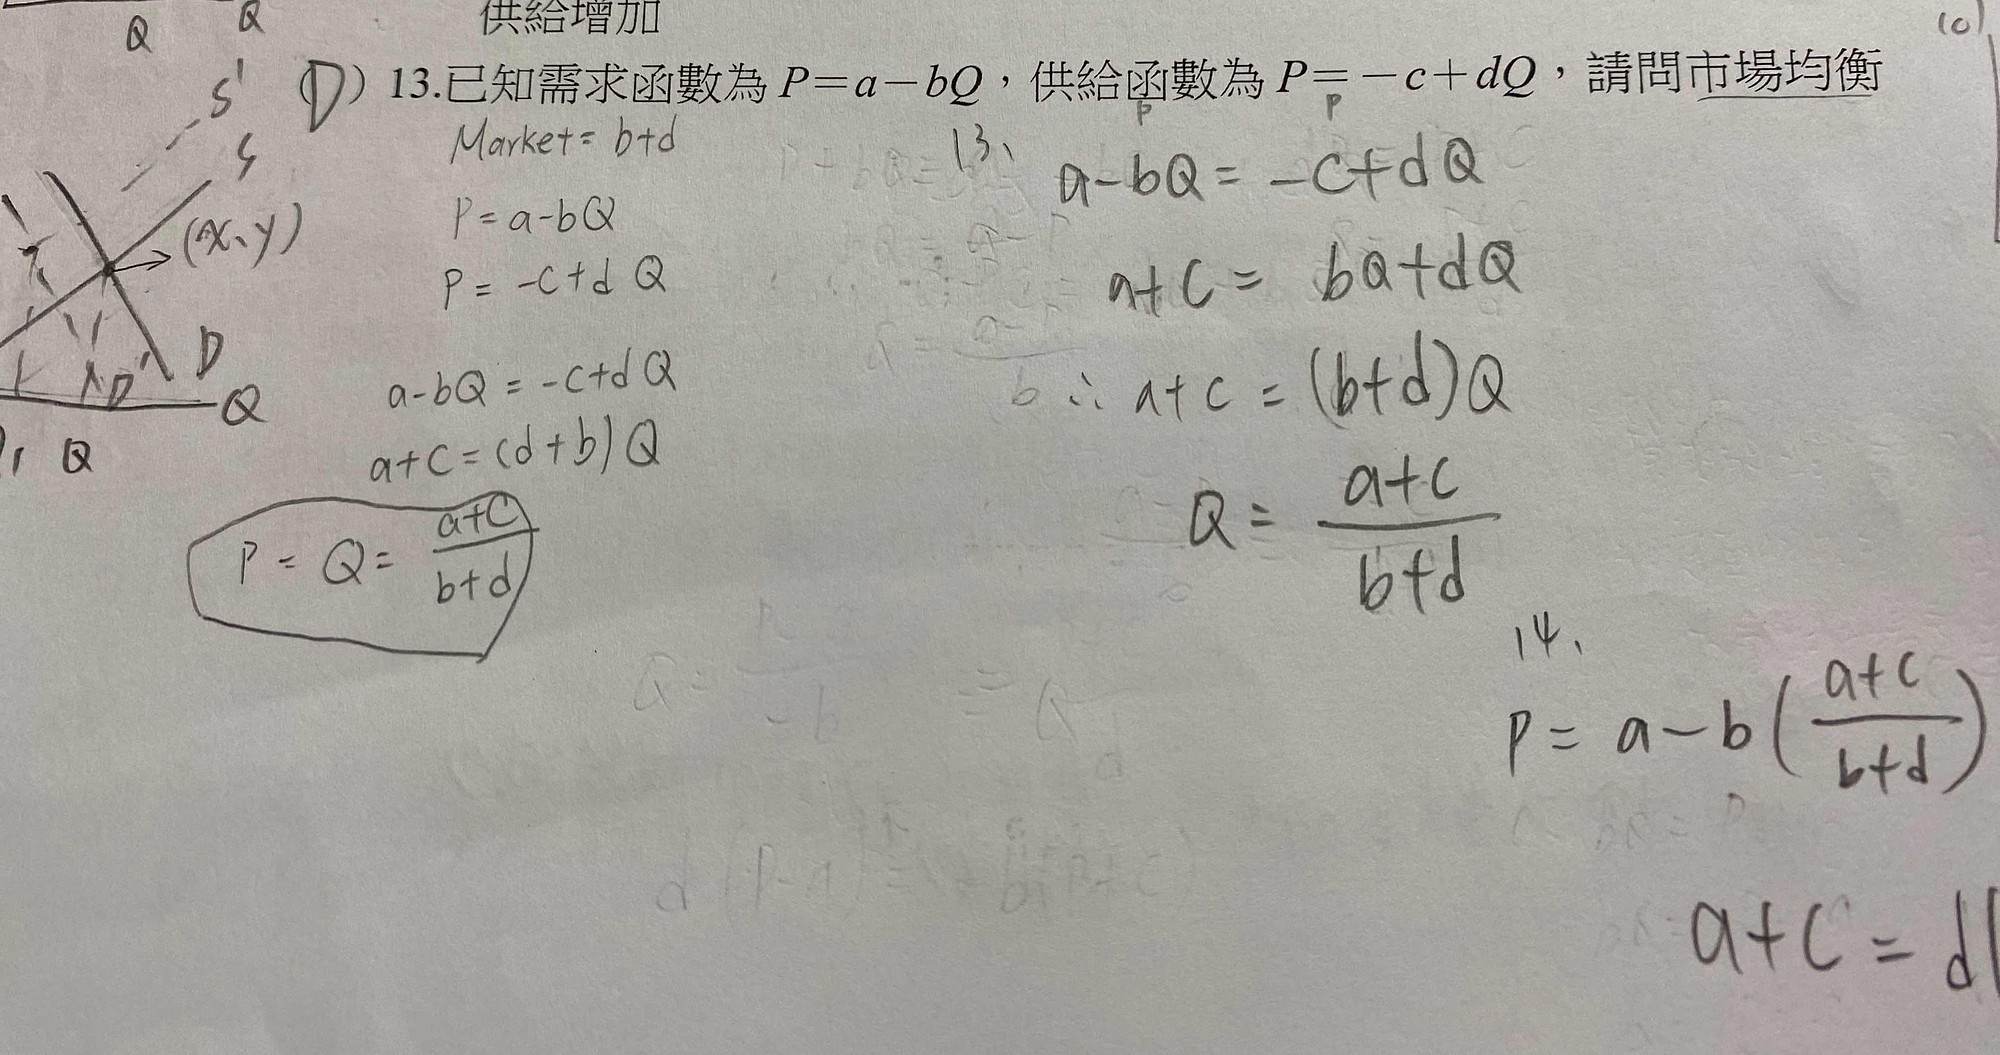 供給增加
Q
Q
(D) 13.已知需求函數為 P=a-bQ，供給函數為 P=-c+dQ，請問市場均衡
P
P
S'
S
(x、y)
D
D'
Q
Q
Market= b+d
P=a-bQ
P= -c+d Q
a-bQ = -c+d Q
a+c=(d+b) Q
P = Q= \frac{a+c}{b+d}
13、
a-bQ= -c+d Q
a+c= bQ+dQ
∴ a+c = (b+d)Q
Q= \frac{a+c}{b+d}
14、
P= a-b(\frac{a+c}{b+d})
a+c= d(